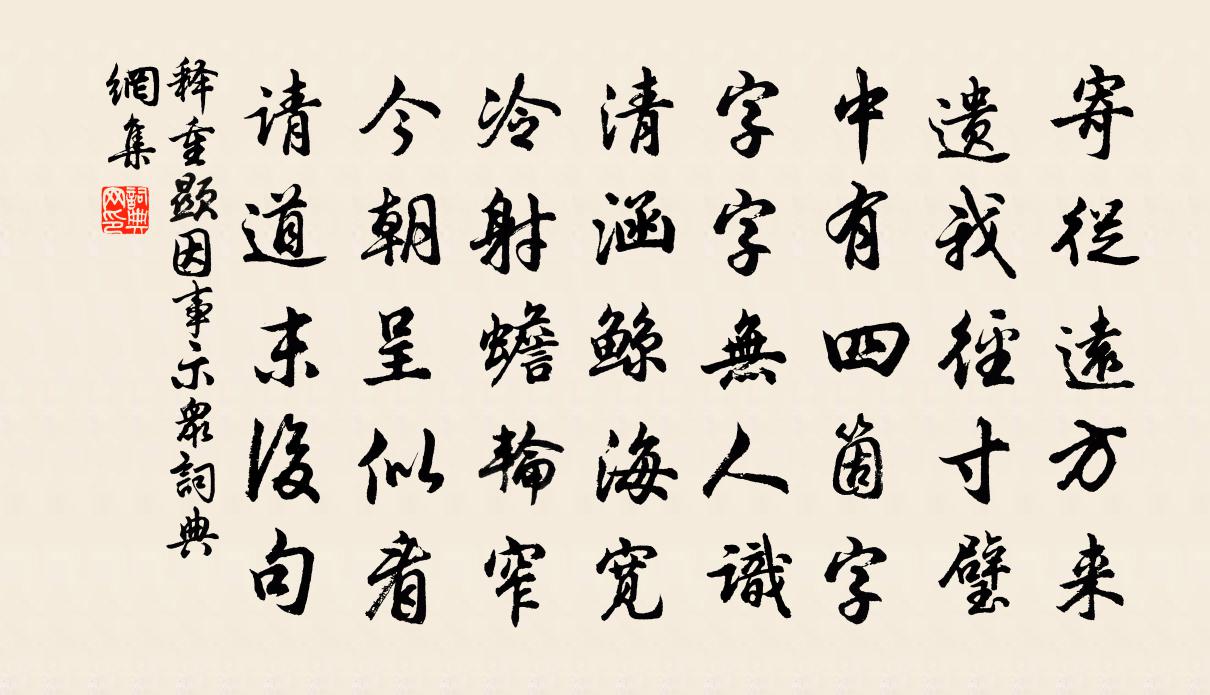 寄從遠方来
遗我徑寸璧
中有四箇字
字字無人識
清涵鲸海宽
冷射蟾輪窄
今朝呈似看
请道末後句
释重顯因事示衆詞典
網集
詞典
网印